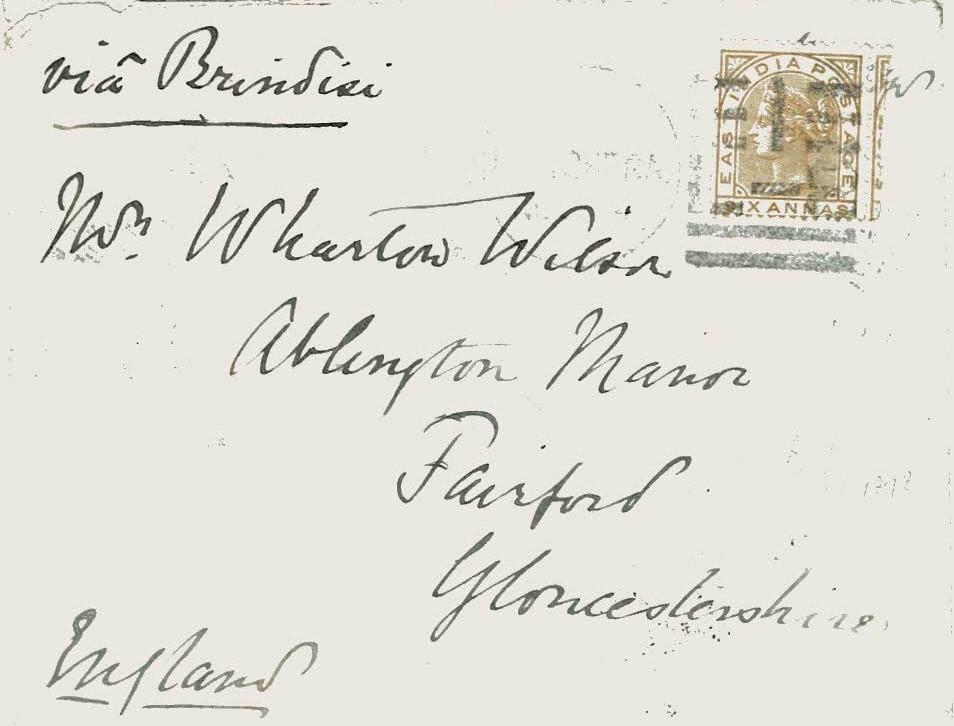 viâ Brindisi
EAST INDIA POSTAGE
SIX ANNAS
Mr. Wharton Wilson
Ablington Manor
Fairford
Gloucestershire
England